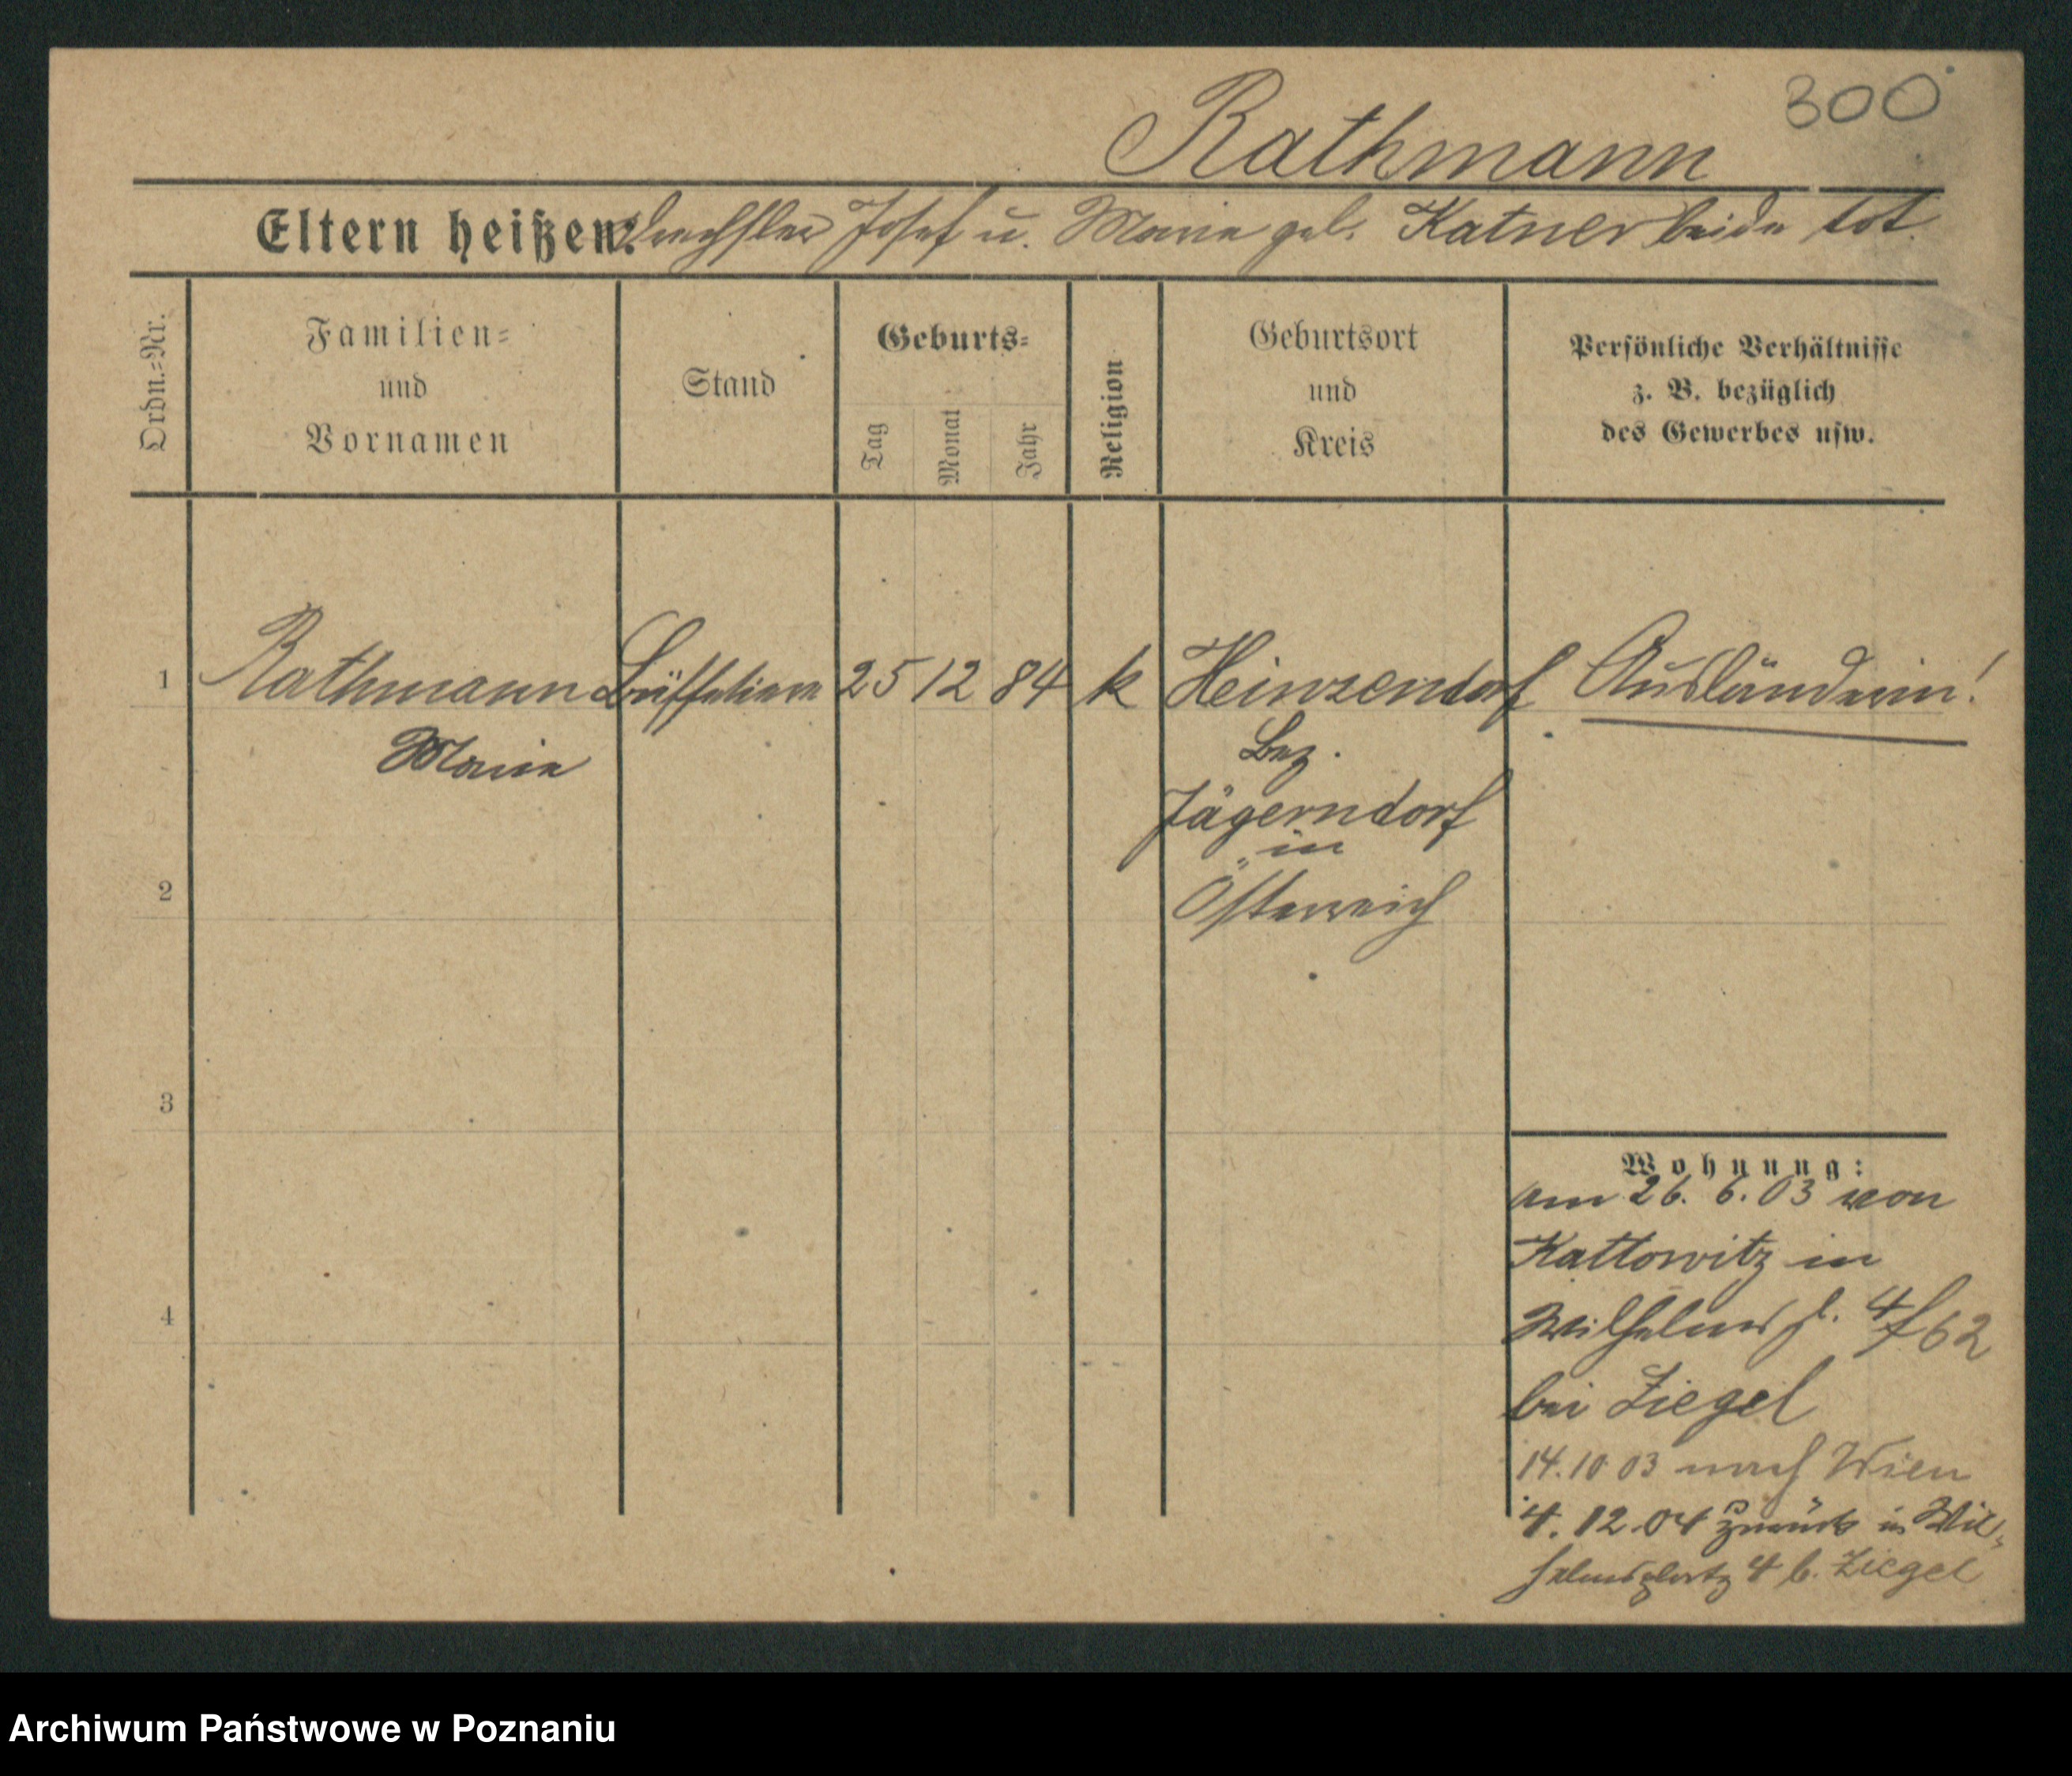 300
Rathmann
Eltern heißen: Drechsler Josef u. Marie geb. Katner beide tot.
Ordn.=Nr.
Familien=
und
Vornamen
Stand
Geburts=
Tag
Monat
Jahr
Religion
Geburtsort
und
Kreis
Persönliche Verhältnisse
z. B. bezüglich
des Gewerbes usw.
1 Rathmann Büffetiere 25 12 84 k Heinzendorf Ausländerin!
Marie
Bez.
Jägerndorf
in
Österreich
2
3
4
Wohnung:
am 26. 6. 03 von
Kattowitz in
Wilhelmspl. 4/62
bei Ziegel
14.10 03 nach Wien
4. 12. 04 zurück in Wil=
helmsplatz 4 b. Ziegel
Archiwum Państwowe w Poznaniu